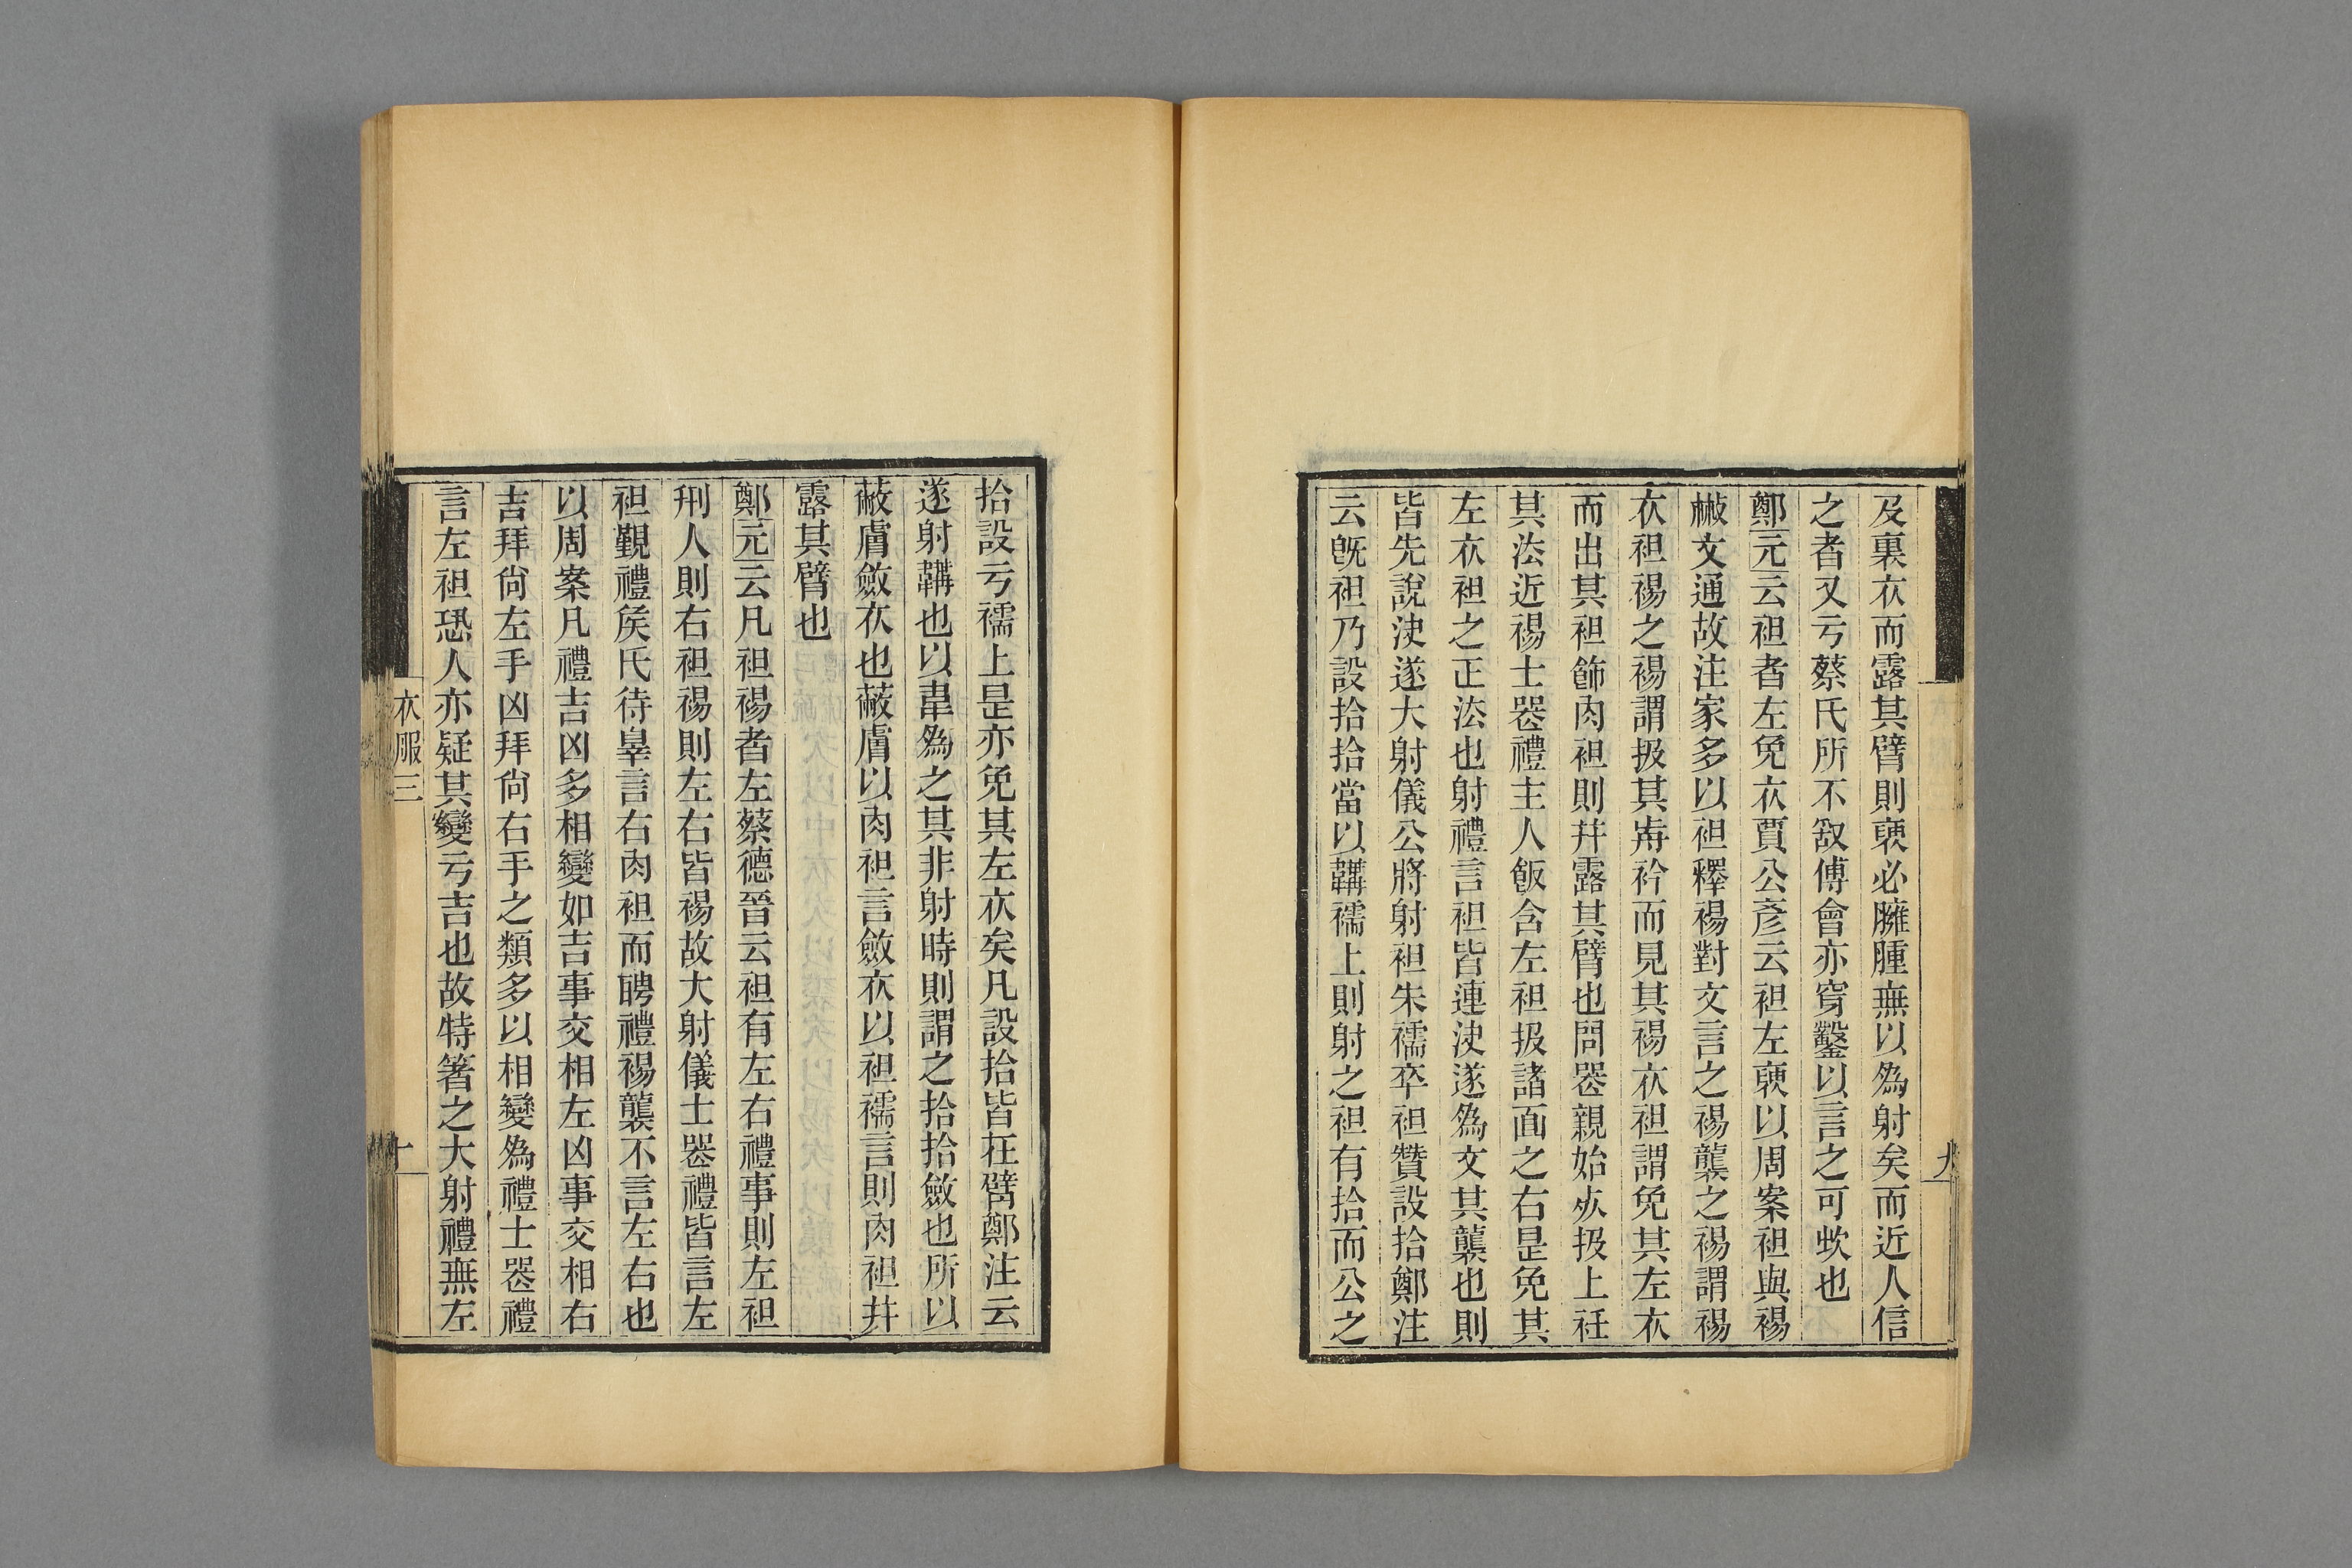 及裏衣而露其臂則𠅤必臃腫無以為射矣而近人信
之者又亏蔡氏所不敢傅會亦穿鑿以言之可㰞也
鄭元云袒者左免衣賈公彥云袒左𠅤以周案袒與裼
㪤文通故注家多以袒釋裼對文言之裼襲之裼謂裼
衣袒裼之裼謂扱其歬衿而見其裼衣袒謂免其左衣
而出其袒飾肉袒則幷露其臂也問喪親始𣦸扱上衽
其法近裼士喪禮主人飯含左袒扱諸面之右是免其
左衣袒之正法也射禮言袒皆連決遂為文其襲也則
皆先說決遂大射儀公將射袒朱襦卒袒贊設拾鄭注
云既袒乃設拾拾當以韝襦上則射之袒有拾而公之
拾設亏襦上是亦免其左衣矣凡設拾皆在臂鄭注云
遂射韝也以韋為之其非射時則謂之拾拾斂也所以
蔽膚斂衣也蔽膚以肉袒言斂衣以袒襦言則肉袒幷
露其臂也
鄭元云凡袒裼者左蔡德晉云袒有左右禮事則左袒
刑人則右袒裼則左右皆裼故大射儀士喪禮皆言左
袒覲禮矦氏待辠言右肉袒而聘禮裼襲不言左右也
以周案凡禮吉凶多相變如吉事交相左凶事交相右
吉拜尙左手凶拜尙右手之類多以相變為禮士喪禮
言左袒恐人亦疑其變亏吉也故特箸之大射禮無左
衣服三
十
九